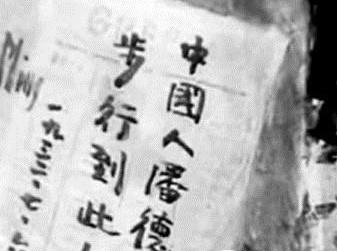 中國人潘德
步行到此
一九三三·七·
Ming